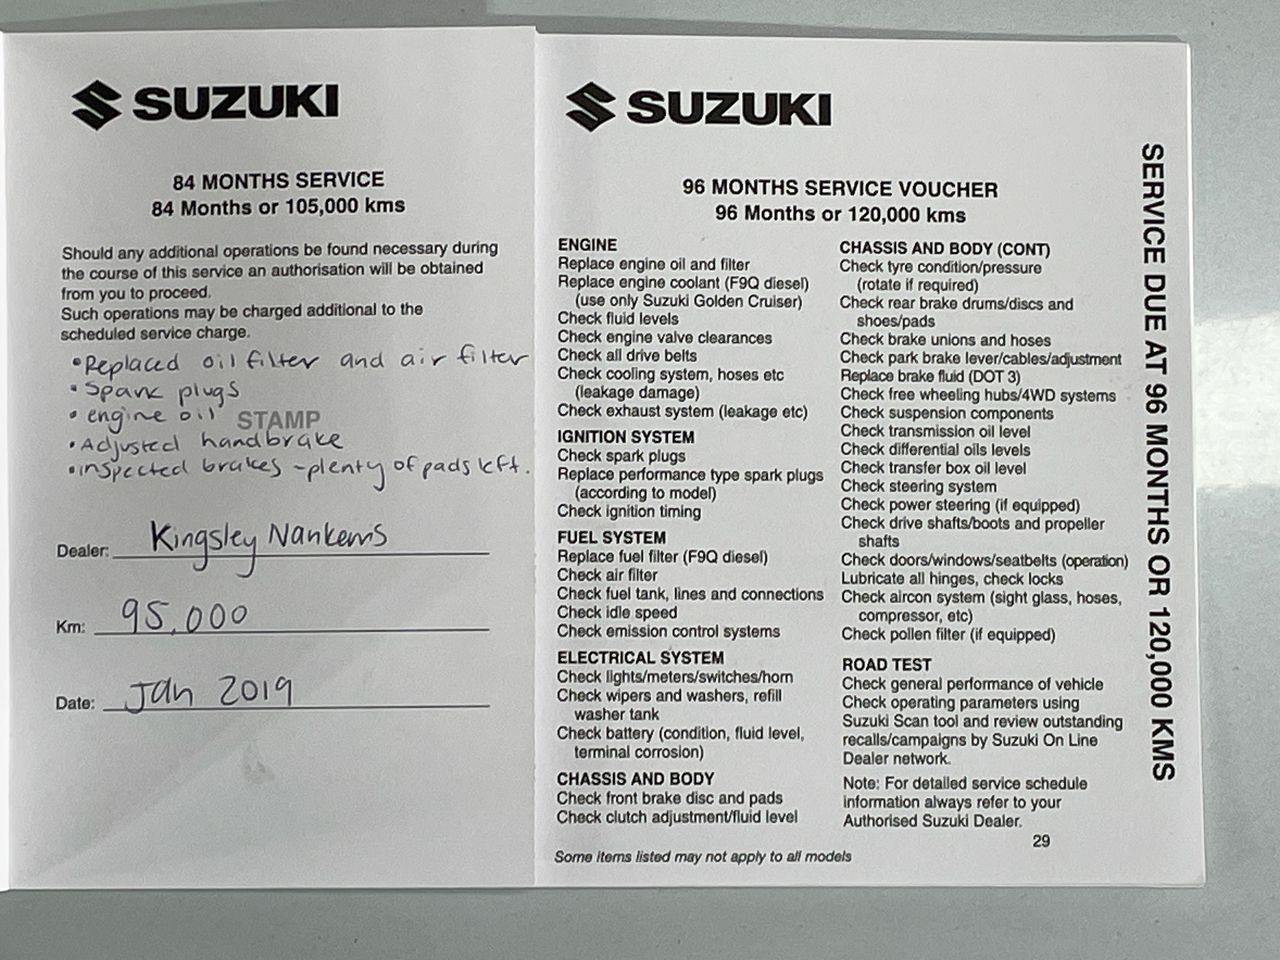 SUZUKI
84 MONTHS SERVICE
84 Months or 105,000 kms
Should any additional operations be found necessary during
the course of this service an authorisation will be obtained
from you to proceed.
Such operations may be charged additional to the
scheduled service charge.
•Replaced oil filter and air filter
• Spark plugs
• engine oil
STAMP
•Adjusted handbrake
•inspected brakes -plenty of pads left.
Dealer: Kingsley Nankervis
Km: 95,000
Date: Jan 2019
SUZUKI
96 MONTHS SERVICE VOUCHER
96 Months or 120,000 kms
ENGINE
Replace engine oil and filter
Replace engine coolant (F9Q diesel)
(use only Suzuki Golden Cruiser)
Check fluid levels
Check engine valve clearances
Check all drive belts
Check cooling system, hoses etc
(leakage damage)
Check exhaust system (leakage etc)
IGNITION SYSTEM
Check spark plugs
Replace performance type spark plugs
(according to model)
Check ignition timing
FUEL SYSTEM
Replace fuel filter (F9Q diesel)
Check air filter
Check fuel tank, lines and connections
Check idle speed
Check emission control systems
ELECTRICAL SYSTEM
Check lights/meters/switches/horn
Check wipers and washers, refill
washer tank
Check battery (condition, fluid level,
terminal corrosion)
CHASSIS AND BODY
Check front brake disc and pads
Check clutch adjustment/fluid level
Some items listed may not apply to all models
CHASSIS AND BODY (CONT)
Check tyre condition/pressure
(rotate if required)
Check rear brake drums/discs and
shoes/pads
Check brake unions and hoses
Check park brake lever/cables/adjustment
Replace brake fluid (DOT 3)
Check free wheeling hubs/4WD systems
Check suspension components
Check transmission oil level
Check differential oils levels
Check transfer box oil level
Check steering system
Check power steering (if equipped)
Check drive shafts/boots and propeller
shafts
Check doors/windows/seatbelts (operation)
Lubricate all hinges, check locks
Check aircon system (sight glass, hoses,
compressor, etc)
Check pollen filter (if equipped)
ROAD TEST
Check general performance of vehicle
Check operating parameters using
Suzuki Scan tool and review outstanding
recalls/campaigns by Suzuki On Line
Dealer network.
Note: For detailed service schedule
information always refer to your
Authorised Suzuki Dealer.
29
SERVICE DUE AT 96 MONTHS OR 120,000 KMS